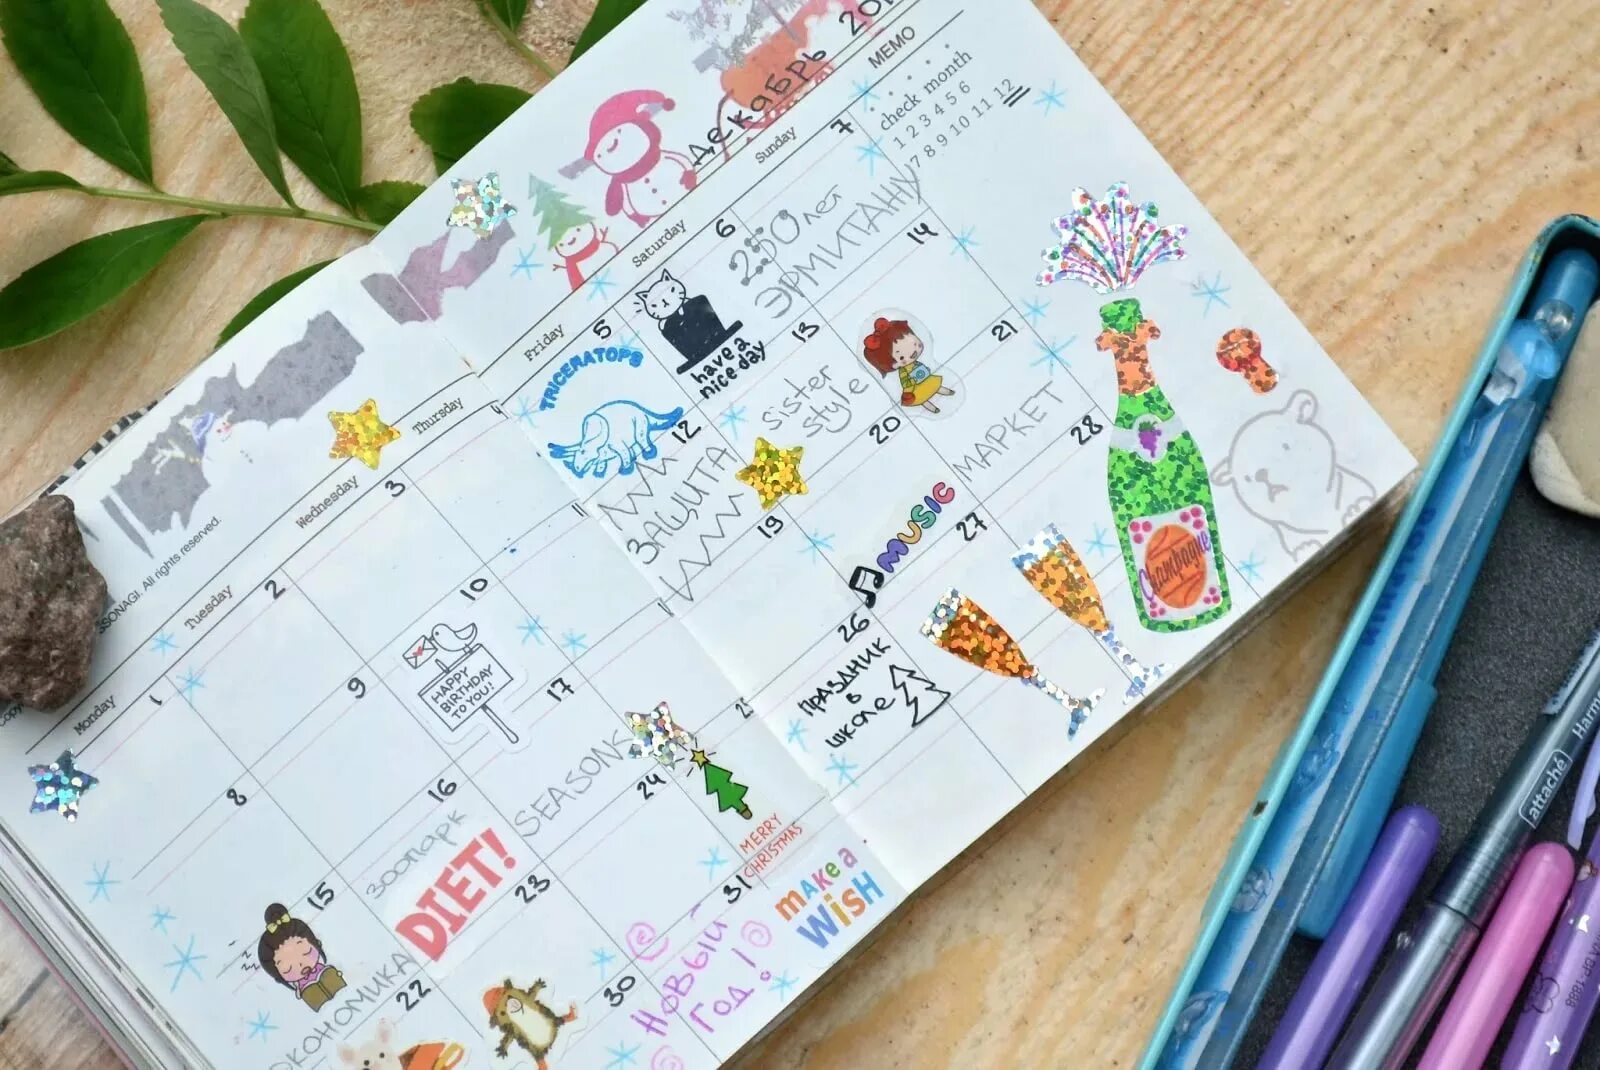 Декабрь
MEMO
check month
1 2 3 4 5 6
7 8 9 10 11 12
SONAGI. All rights reserved.
Monday
Tuesday
Wednesday
Thursday
Friday
Saturday
Sunday
1
2
3
4
5
TRICERATOPS
6
have a
nice day
7
250 лет
ЭРМИТАЖУ
8
9
10
HAPPY
BIRTHDAY
TO YOU!
11
12
ЗАЩИТА
13
sister
style
14
15
16
зоопарк
DIET!
17
SEASONS
19
20
MUSIC
21
МАРКЕТ
22
23
24
25
MERRY
CHRISTMAS
26
ПРАЗДНИК
В
ШКОЛЕ
27
28
Champagne
30
31
НОВЫЙ
ГОД!
MAKE A
WISH
attaché